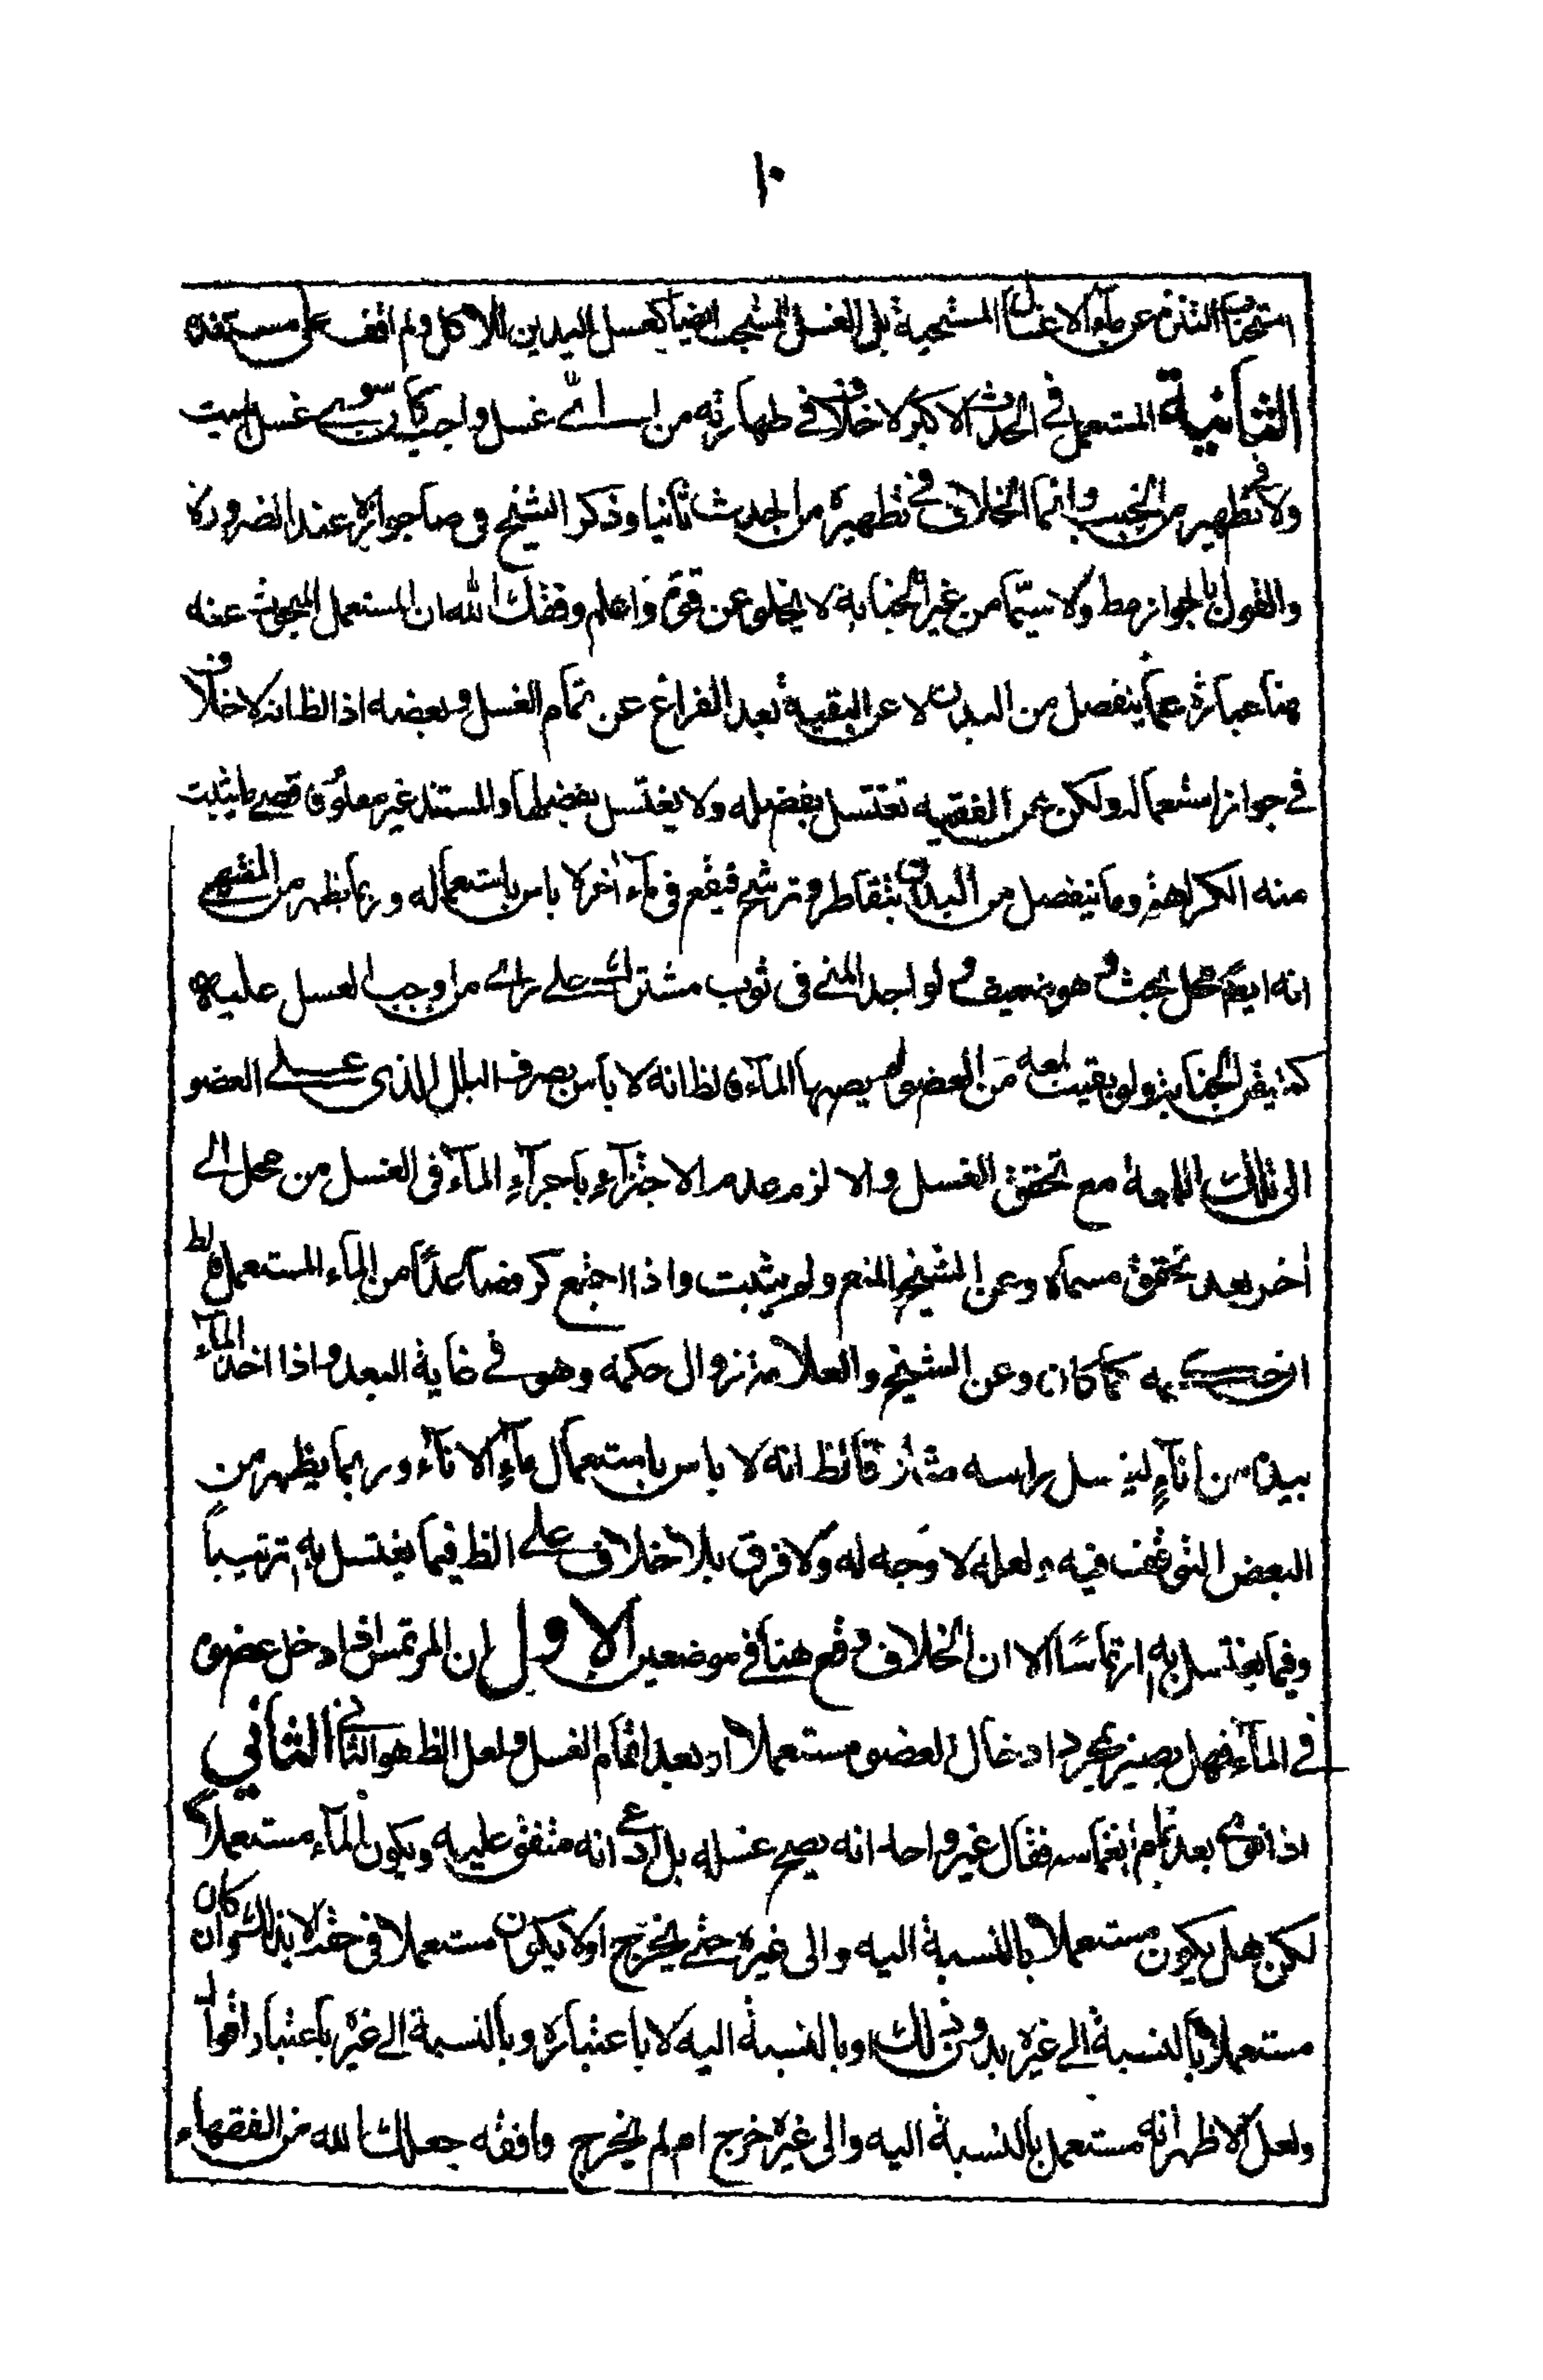 ١٠
استحباب التنزه عن ماء الاغسال المستحبة بل الغسل المستحب ايضا كغسل اليدين للاكل ولم اقف على مستنده
الثانية المستعمل في الحدث الاكبر لا خلاف في طهارته من اي غسل واجب كان سوى غسل الميت
ولا في تطهيره من الخبث وانما الخلاف في تطهيره من الحدث ثانيا وذكر الشيخ وصا جوازه عند الضرورة
والقول بالجواز مط ولا سيّما من غير الجنابة لا يخلو عن قوة واعلم وفقك الله ان المستعمل المبحوث عنه
هنا عبارة عما ينفصل من البدن لا عن البقية بعد الفراغ عن تمام الغسل وبعضه اذ الظ انه لا خلاف
في جواز استعماله ولكن عن الفقيه تغتسل بفضله ولا يغتسل بفضلها والمستند غير معلوم يثبت
منه الكراهة وما ينفصل من البدن بتقاطر وترشح فيقع في ماء اخر لا باس باستعماله وربما يظهر من
انه ايضا محل بحث وهو ضعيف ولو اجد المني في ثوب مشترك على راي من اوجب الغسل عليه
كمتيقن الجنابة ولو بقيت لمعه من العضو لم يصبها الماء فالظ انه لا باس بصرف البلل الذي على العضو
الى تلك اللمعة مع تحقق الغسل والا لزم عدم الاجتزاء باجراء الماء في الغسل من محل الى
اخر بعد تحقق مسماه وعن الشيخ المنع ولم يثبت واذا اجتمع كر فصاعدًا من الماء المستعمل فالظ
به كما كان وعن الشيخ والعلامة زوال حكمه وهو في غاية البعد واذا اخذ الماء
بيده من اناءٍ ليغسل راسه مثلا فالظ انه لا باس باستعمال ماء الاناء وربما يظهر من
البعض التوقف فيه ولعله لا وجه له ولا فرق بلا خلاف على الظ فيما يغتسل به ترتيباً
وفيما يغتسل به ارتماسًا الا ان الخلاف وقع هنا في موضعين الاول ان المرتمس اذا دخل عضوه
في الماء فهل يصير بمجرد ادخال العضو مستعملا او بعد اتمام الغسل ولعل الظ هو الثاني الثاني
اذا نوى بعد تمام انغماسه فقال غير واحد انه يصح غسله بل ادعى انه متفق عليه ويكون الماء مستعملا
لكن هل يكون مستعملا بالنسبة اليه والى غيره حتى يخرج اولا يكون مستعملا في حقه الا بذلك وان كان
مستعملا بالنسبة الى غيره بدون ذلك او بالنسبة اليه لا باعتباره وبالنسبة الى غيره باعتبار اقوال
ولعل الاظهر انه مستعمل بالنسبة اليه والى غيره خرج ام لم يخرج وافقه جعلك الله من الفقهاء